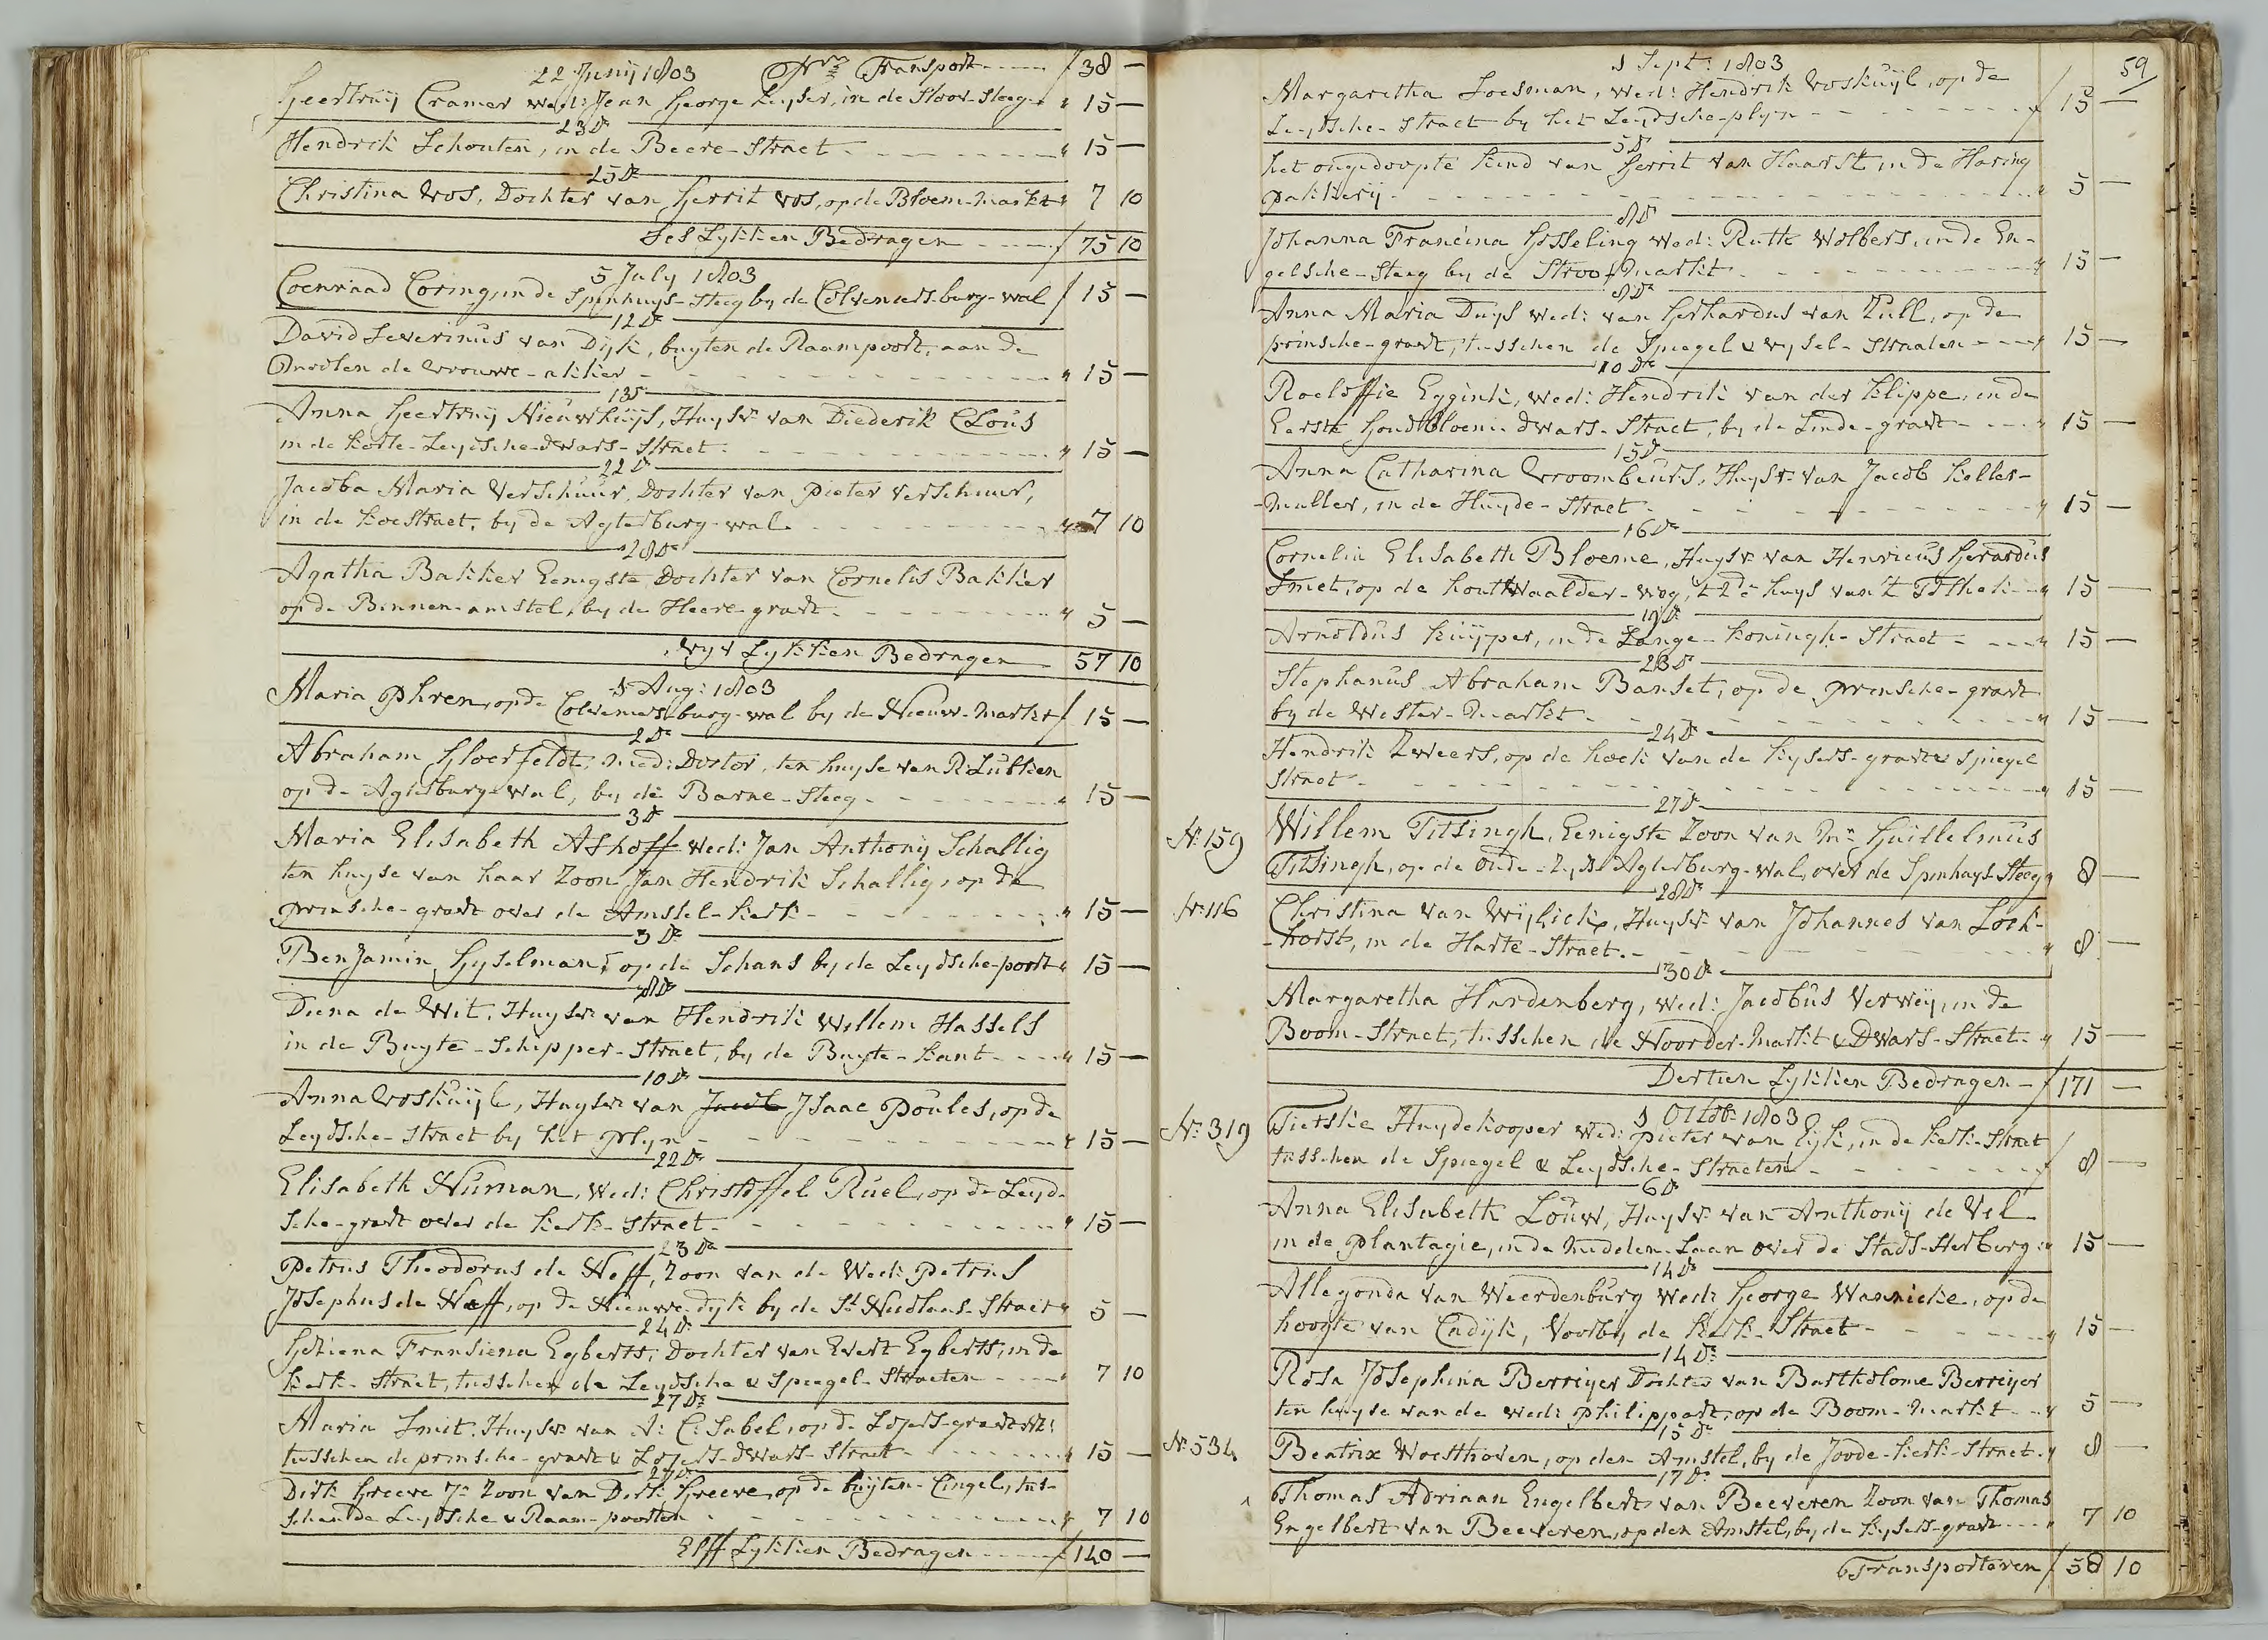 22 Junij 1803 Pr Transport ƒ 38 —
Geertruij Cramer wed: Jean George Keyser, in de Stoof-Steeg " 15 —
23 Do
Hendrik Schouten, in de Beere-Straet " 15 —
25 Do
Christina Vos, Dochter van Gerrit Vos, op de Bloem-markt " 7 10
Ses Lykken Bedragen ƒ 75 10
5 July 1803
Coenraad Coring, in de Spinhuys-Steeg by de Colveniers-burg-wal ƒ 15 —
12 Do
David Severinus van Dijk, buyten de Raampoort, aan de
Molen de Vrouwe-akker " 15 —
13 Do
Anna Geertruij Nieuwhuijs, Huysvr: van Diederik Clous
in de Korte-Leydsche-dwars-Straet " 15 —
22 Do
Jacoba Maria Verschuur, Dochter van Pieter Verschuur,
in de Koestraet, by de Agterburg-wal " 7 10
28 Do
Agatha Bakker Eenigste Dochter van Cornelis Bakker
op de Binnen-amstel, by de Heere-graft " 5 —
Vyf Lykken Bedragen 57 10
1 Aug: 1803
Maria Phren, op de Colveniers-burg-wal by de Nieuw-Markt ƒ 15 —
2 Do
Abraham Gloerfeldt, Med: Doctor, ten huyse van R: Lubken
op de Agterburg-Wal, by de Barne-Steeg " 15 —
3 Do
Maria Elisabeth Ashoff wed: Jan Anthony Schallig
ten huyse van haar Zoon Jan Hendrik Schallig, op de
prinsche-graft over de Amstel-kerk " 15 —
3 Do
Benjamin Gyselman, op de Schans by de Leydsche-poort " 15 —
8 Do
Diena de Wit, Huysvr: van Hendrik Willem Hassels
in de Buyte-Schipper-Straet, by de Buyte-kant " 15 —
10 Do
Anna Voskuijl, Huysvr: van Jacob Isaac Poules, op de
Leydsche-Straet by het plyn " 15 —
22 Do
Elisabeth Numan, wed: Christoffel Ruel, op de Leyd-
sche-graft over de Kerk-Straet " 15 —
23 Do
Petrus Theodorus de Neff, Zoon van de Wed: Petrus
Josephus de Neff, op de Nieuwe-dyk by de St Nicolaas-Straet " 5 —
24 Do
Gesiena Fransiena Egberts, Dochter van Evert Egberts, in de
Kerk-Straet, tusschen de Leydsche & Spiegel-Straeten " 7 10
27 Do
Maria Smit, Huysvr: van A: C: Sabel, op de Loyers-graft
tusschen de prinsche-graft & Loyers-dwars-Straet " 15 —
27 Do
Dirk Greeve Jr Zoon van Dirk Greeve, op de buyten-Cingel, tus-
schen de Leydsche & Raam-poorten " 7 10
Elff Lykken Bedragen ƒ 140 —
59
1 Sept: 1803
Margaretha Soesman, wed: Hendrik Voskuijl, op de
Leydsche-Straet by het Leydsche-plyn ƒ 15 —
5 Do
het ongedoopte Kind van Gerrit van Haarst in de Haring
pakkery " 5 —
8 Do
Johanna Francina Gosseling Wed: Ruth Wolbers, in de En-
gelsche-Steeg by de Stroo-Markt " 15 —
8 Do
Anna Maria Duys Wed: van Gerhardus van Zull, op de
prinsche-graft, tusschen de Spiegel & Vysel-Straaten " 15 —
10 Do
Roeloffie Eggink, Wed: Hendrik van der Klippe, in de
Eerste Goudbloem-dwars-Straet, by de Linde-graft " 15 —
15 Do
Anna Catharina Vroombeurs, Huysvr: van Jacob Keller-
-muller, in de Huyde-Straet " 15 —
16 Do
Cornelia Elisabeth Bloeme, Huysvr: van Henricus Gerardus
Smet, op de houtWaalder-weg, 't 2de huys van 't Tolhek " 15 —
19 Do
Arnoldus Kuijper, in de Lange-Koningh-Straet " 15 —
23 Do
Stephanus Abraham Banset, op de prinsche-graft
by de Wester-Markt " 15 —
24 Do
Hendrik Zweers, op de hoek van de Kysers-graft & Spiegel
Straet " 15 —
27 Do
No 159 Willem Titsingh, Eenigste Zoon van Mr Guillelmus
Titsingh, op de Oude-Zyds-Agterburg-wal, over de Spinhuys-Steeg " 8 —
28 Do
No 116 Christina van Wijlick, Huysvr: van Johannes van Lock-
-horst, in de Harte-Straet " 8 —
30 Do
Margaretha Hardenberg, Wed: Jacobus Verweij, in de
Boom-Straet, tusschen de Noorder-Markt & Dwars-Straet " 15 —
Dertien Lykken Bedragen ƒ 171 —
1 Octob: 1803
No 319 Tietske Huydekooper Wed: Pieter van Eyk, in de Kerk-Straet
tusschen de Spiegel & Leydsche-Straeten ƒ 8 —
6 Do
Anna Elisabeth Louw, Huysvr: van Anthony de Vel
in de plantagie, in de Middelen-Laan over de Stads-Herburg " 15 —
14 Do
Allegonda van Weerdenburg Wed: George Wannicke, op de
hoogte van Cadijk, Voorby de Kerk-Straet " 15 —
14 Do
Rosa Josephina Berreyer Dochter van Bartholome Berreyer
ten huyse van de wed: Philippart, op de Boom-Markt " 5 —
15 Do
No 534 Beatrix Woesthoven, op den Amstel, by de Joode-Kerk-Straet " 8 —
17 Do
Thomas Adriaan Engelbert van Beeveren Zoon van Thomas
Engelbert van Beeveren, op den Amstel, by de Kysers-graft " 7 10
Transporteren ƒ 58 10